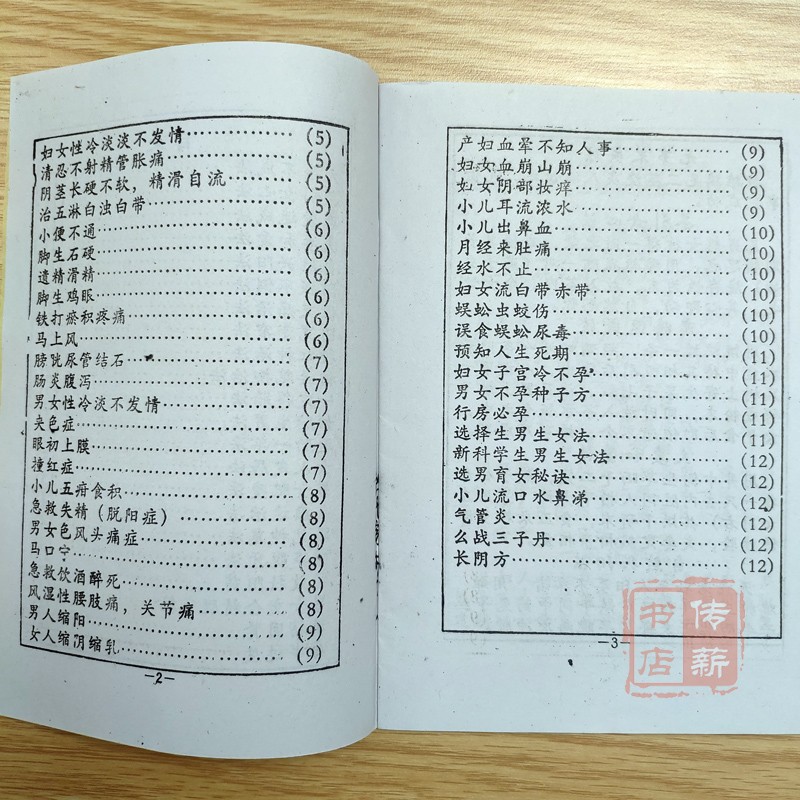 妇女性冷淡淡不发情……………(5)
清忍不射精管胀痛……………(5)
阴茎长硬不软，精滑自流………(5)
治五淋白浊白带………………(5)
小便不通………………………(6)
脚生石硬………………………(6)
遗精滑精………………………(6)
脚生鸡眼………………………(6)
铁打瘀积疼痛…………………(6)
马上风…………………………(6)
膀恍尿管结石…………………(7)
肠炎腹泻………………………(7)
男女性冷淡不发情……………(7)
夹色症…………………………(7)
眼初上膜………………………(7)
撞红症…………………………(7)
小儿五疳食积…………………(8)
急救失精（脱阳症）……………(8)
男女色风头痛症………………(8)
马口…………………………(8)
急救饮酒醉死…………………(8)
风湿性腰肢痛，关节痛…………(8)
男人缩阳………………………(9)
女人缩阴缩乳…………………(9)
—2—
产妇血晕不知人事……………(9)
妇女血崩山崩…………………(9)
妇女阴部妆痒…………………(9)
小儿耳流浓水…………………(9)
小儿出鼻血……………………(10)
月经来肚痛……………………(10)
经水不止………………………(10)
妇女流白带赤带………………(10)
蜈蚣虫蛟伤……………………(10)
误食蜈蚣尿毒…………………(10)
预知人生死期…………………(11)
妇女子宫冷不孕………………(11)
男女不孕种子方………………(11)
行房必孕………………………(11)
选择生男生女法………………(11)
新科学生男生女法……………(12)
选男育女秘诀…………………(12)
小儿流口水鼻涕………………(12)
气管炎…………………………(12)
么战三子丹……………………(12)
长阴方…………………………(12)
—3—
传薪
书店